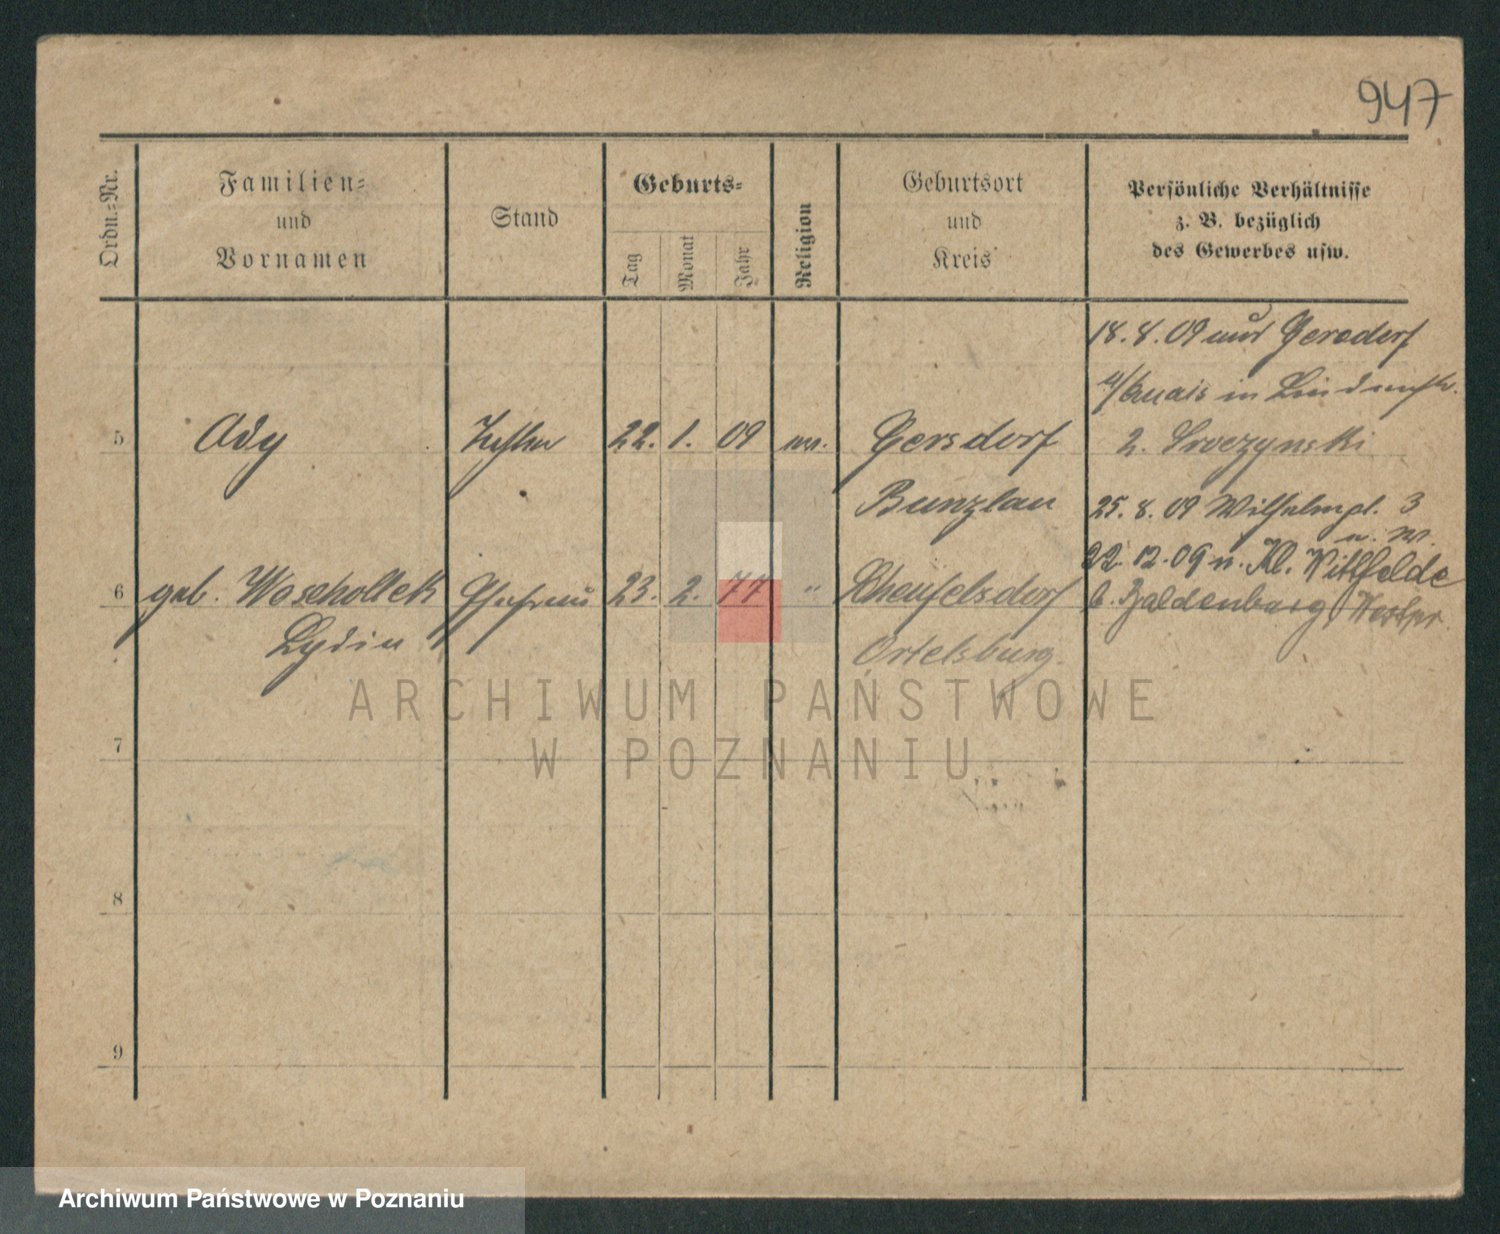 947
Ordn.-Nr.
Familien-
und
Vornamen
Stand
Geburts-
Tag
Monat
Jahr
Religion
Geburtsort
und
Kreis
Persönliche Verhältnisse
z. B. bezüglich
des Gewerbes usw.
18. 8. 09 aus Gersdorf
in
5 Ady 22. 1. 09 Gersdorf
Bunzlau
25. 8. 09 Wilhelmpl. 3
22. 12. 09 n. Kl. Wittfelde
6 geb. Woschollek Ehefrau 23. 2. 77 " Rheufelsdorf
b. Baldenburg Westpr.
Lydia
Ortelsburg.
7
8
9
ARCHIWUM PAŃSTWOWE
W POZNANIU
Archiwum Państwowe w Poznaniu